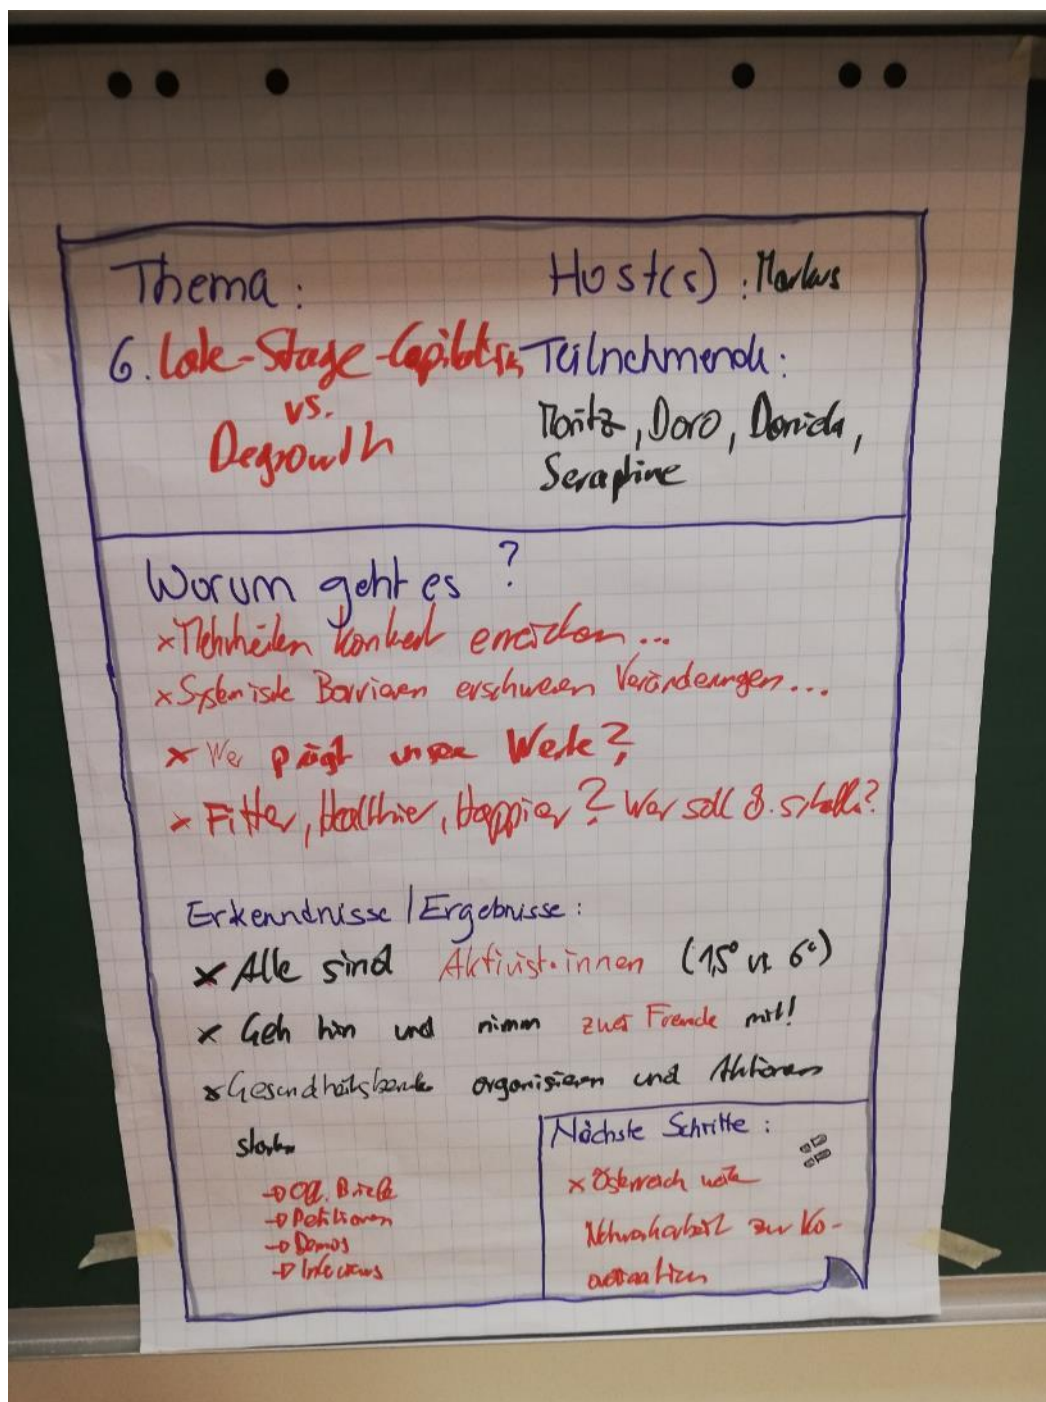 Thema:
Host(s): Markus
6. Late-Stage-Capitalism
vs.
Degrowth
Teilnehmende:
Moritz, Doro, Daniela,
Seraphine
Worum geht es?
× Mehrheiten konkret erreichen...
× Systemische Barrieren erschweren Veränderungen...
× Wer prägt unsere Werte?
× Fitter, Healthier, Happier? Wer soll
Erkenndnisse/Ergebnisse:
× Alle sind Aktivist.innen (1,5° vs. 6°)
× Geh hin und nimm zwei Freunde mit!
× organisieren und Aktionen
starten
→ Off. Briefe
→ Petitionen
→ Demos
→
Nächste Schritte:
× Österreich weite
Netzwerkarbeit zur Ko-
ordination